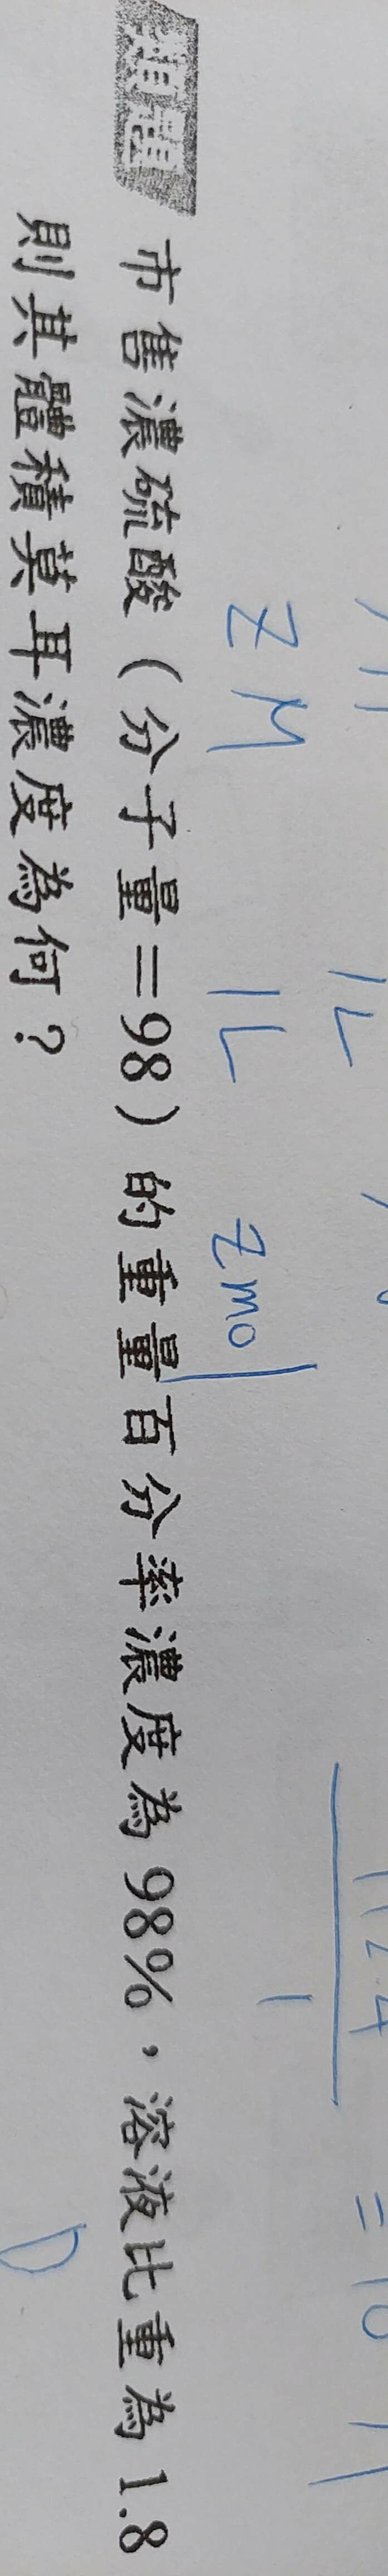 類題 市售濃硫酸（分子量＝98）的重量百分率濃度為 98%，溶液比重為 1.8
則其體積莫耳濃度為何？
ZM 1L Zmol
1L